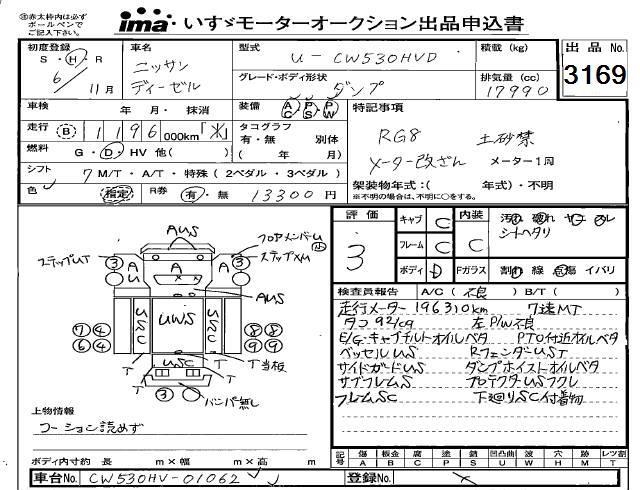 ㊟赤太枠内は必ず
ボールペンで
ご記入下さい。
ima いすゞモーターオークション出品申込書
初度登録
S・H・R
6/11月
車名
ニッサン
ディーゼル
型式
U-CW530HVD
積載(kg)
グレード・ボディ形状
ダンプ
排気量(cc)
17990
出品No.
3169
車検 年 月・抹消
装備 AC PS PW
特記事項
走行 B 1196 000km「*」
タコグラフ
有・無 別体
( 年 月)
RG8 土砂禁
メーター改ざん メーター1周
燃料 G・D・HV 他( )
シフト 7 M/T・A/T・特殊(2ペダル・3ペダル)
架装物年式:( 年式)・不明
※不明の場合は、不明に○をする。
色 指定 R券 有・無 13300円
評価
3
キャブ C
フレーム C
ボディ D
内装 C
シートヘタリ
Fガラス 割 線 危傷 イバリ
検査員報告 A/C(不良) B/T( )
走行メーター196310km 7速MT
タコ92/cg 左P/W不良
E/G・キャブチルトオイルベタ PTO付近オイルベタ
ベッセルUS RフェンダーUST
サイドガードUS ダンプホイストオイルベタ
サブフレムS プロテクタUSフクレ
フレムSC 下廻りSC付着物
AUS
フロアメンバーU
ステップUT ③ A A ③ ステップXM
AUS
USC UWS USC
⑦④ ⑧⑧
⑥④ ⑨⑨
T USC T T当板
T T
③ バンパ無し
上物情報
コーション読めず
ボディ内寸約 長 m×幅 m×高 m
記号 傷 板金 腐 塗 錆 凹凸曲 波 穴 跡 レツ割
A B C P S U W H M T
車台No. CW530HV-01062
登録No.